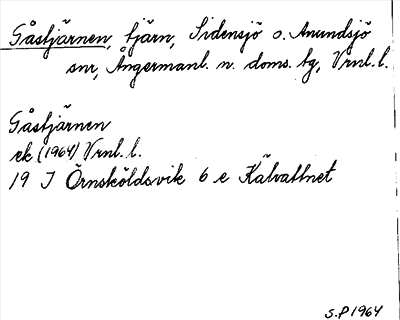 Gåstjärnen, tjärn, Sidensjö o. Anundsjö
snr, Ångermanl. n. doms. tg, Vrnl. l.
Gåstjärnen
ek (1964) Vrnl. l.
19 J Örnsköldsvik 6 e Kälvattnet
S.P 1964